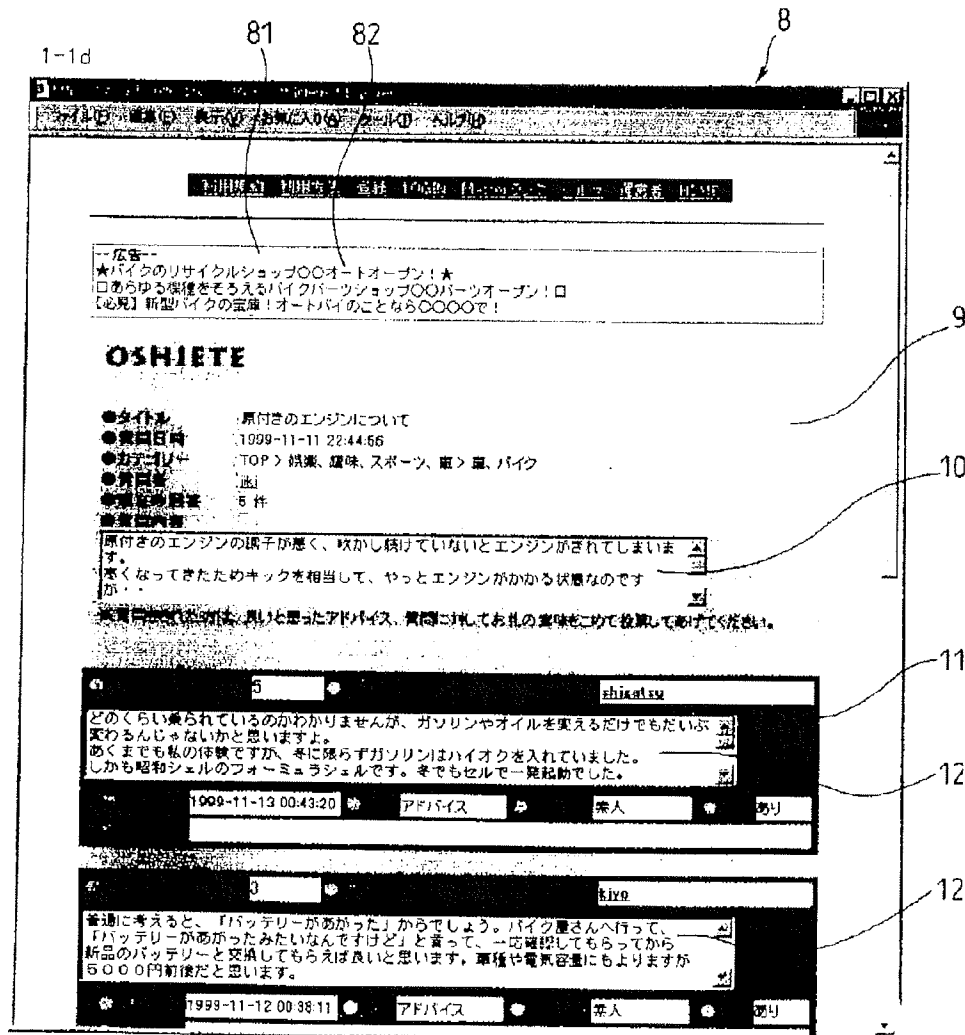 81
82
8
1-1d
ファイル(F) 編集(E) 表示(V) お気に入り(A) ツール(T) ヘルプ(H)
利用規約 登録 LOGIN HOME
--広告--
★バイクのリサイクルショップ〇〇オートオープン!★
□あらゆる機種をそろえるバイクパーツショップ〇〇パーツオープン!□
【必見】新型バイクの宝庫!オートバイのことなら〇〇〇〇で!
9
OSHIETE
●タイトル 原付きのエンジンについて
●質問日時 1999-11-11 22:44:56
●カテゴリー TOP > 娯楽、趣味、スポーツ、車 > 車、バイク
●質問者
10
5 件
●質問内容
原付きのエンジンの調子が悪く、吹かし続けていないとエンジンがきれてしまいま
す。
寒くなってきたためキックを相当して、やっとエンジンがかかる状態なのです
が・・
良いと思ったアドバイス、質問に対してお礼の意味をこめて投票してあげてください。
11
5 shigatsu
どのくらい乗られているのかわかりませんが、ガソリンやオイルを変えるだけでもだいぶ
変わるんじゃないかと思いますよ。
あくまでも私の体験ですが、冬に限らずガソリンはハイオクを入れていました。
しかも昭和シェルのフォーミュラシェルです。冬でもセルで一発起動でした。
12
1999-11-13 00:43:20 アドバイス 素人 あり
3 kiyo
12
普通に考えると、「バッテリーがあがった」からでしょう。バイク屋さんへ行って、
「バッテリーがあがったみたいなんですけど」と言って、一応確認してもらってから
新品のバッテリーと交換してもらえば良いと思います。車種や電気容量にもよりますが
5000円前後だと思います。
1999-11-12 00:38:11 アドバイス 素人 あり